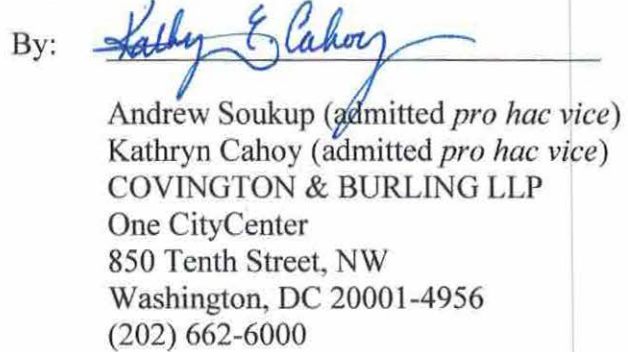 By: Kathy E Cahoy
Andrew Soukup (admitted pro hac vice)
Kathryn Cahoy (admitted pro hac vice)
COVINGTON & BURLING LLP
One CityCenter
850 Tenth Street, NW
Washington, DC 20001-4956
(202) 662-6000